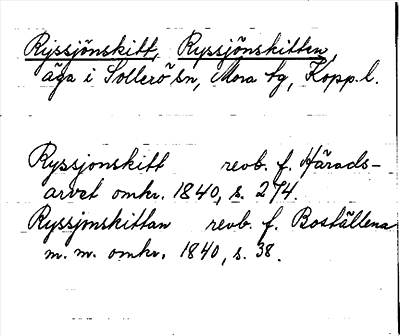 Ryssjönskitt, Ryssjönskitten,
äga i Sollerö sn, Mora tg, Kopp.l.
Ryssjonskitt revb. f. Härads-
arvet omkr. 1840, s. 274.
Ryssjonskittan revb. f. Boställena
m.m. omkr. 1840, s. 38.